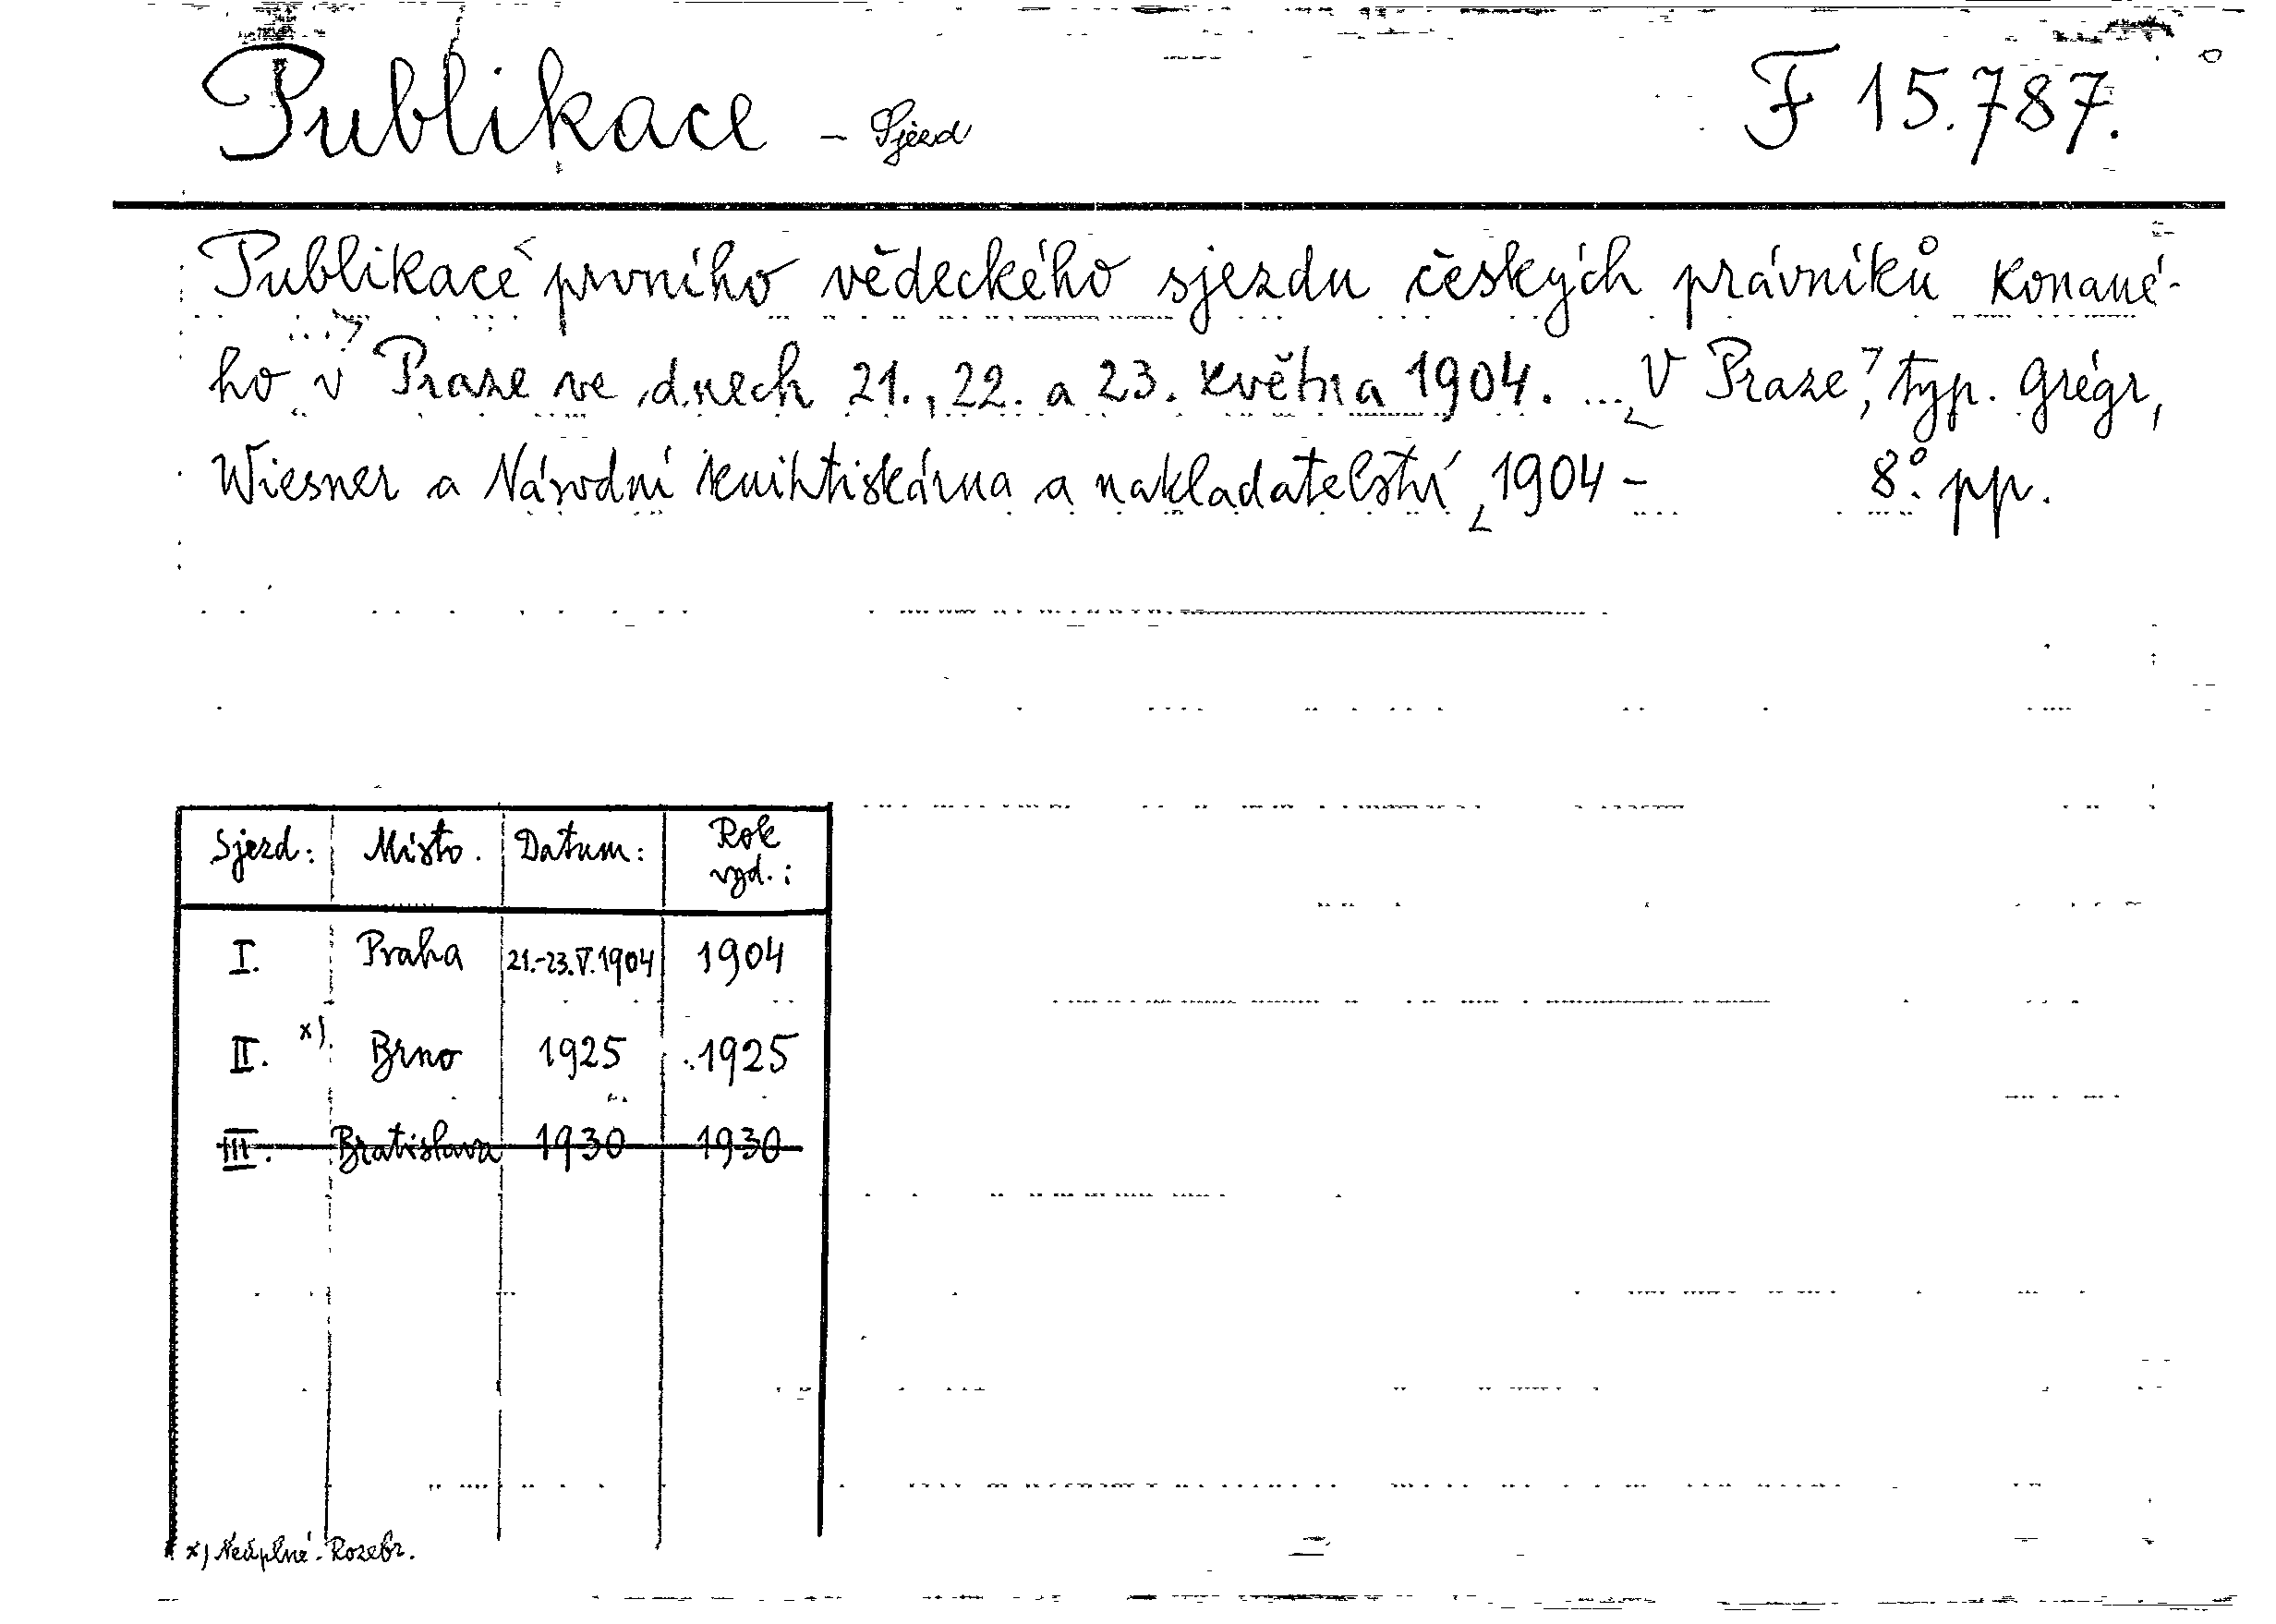 Publikace – Sjezd F 15.787.
Publikace prvního vědeckého sjezdu českých právníků konané-
ho v Praze ve dnech 21., 22. a 23. května 1904. ... V Praze, typ. Grégr,
Wiesner a Národní knihtiskárna a nakladatelství, 1904 – 8º. pp.
Sjezd: Místo. Datum: Rok
vyd.:
I. Praha 21.-23.V.1904 1904
II. x) Brno 1925 1925
III. Bratislava 1930 1930
x) Neúplné. Rozebr.